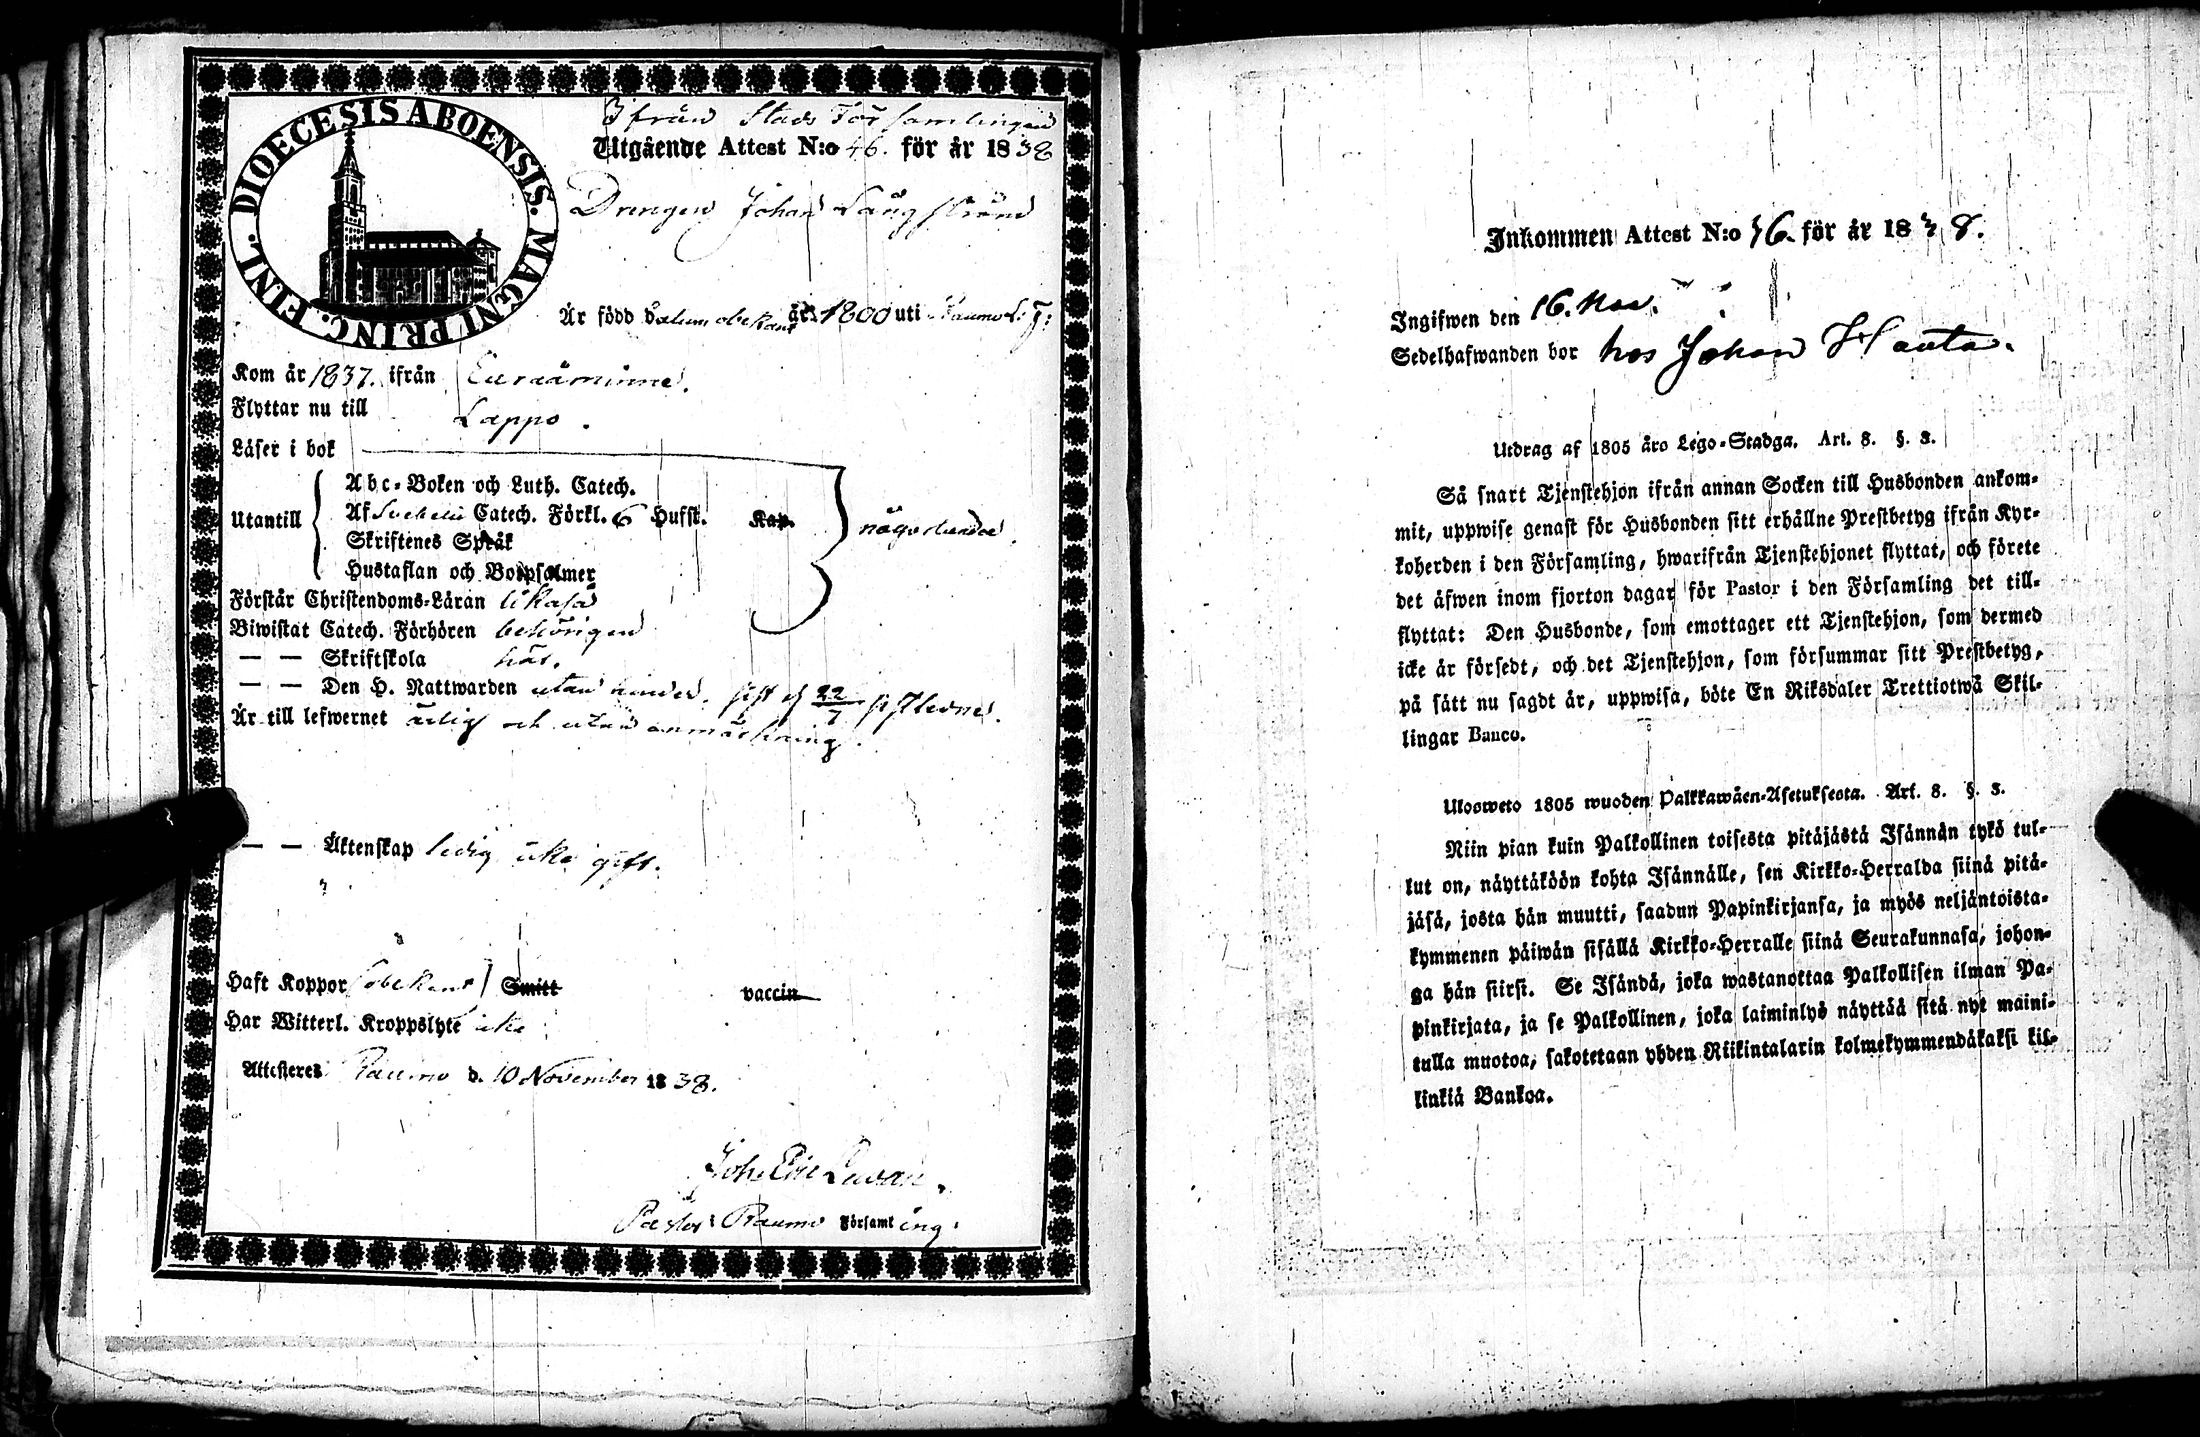 DIOECESIS ABOENSIS. MAGNI PRINC. FINL.
Ifrån Stads Församlingen
Utgående Attest N:o 46. för år 1838
Drengen Johan Långström
Är född datum obekant år 1800 uti Raumo L: f:
Kom år 1837. ifrån Euraåminne.
Flyttar nu till Lappo.
Läser i bok
Abc-Boken och Luth. Catech.
Utantill Af Svebelii Catech. Förkl. 6 Hufst. Kap. någorlunda.
Skriftenes Språk
Hustaflan och Botpsalmer
Förstår Christendoms-Läran likaså
Biwistat Catech. Förhören behörigen
— — Skriftskola här.
— — Den H. Nattwarden utan hinder, sist d 22/7 sistledne.
Är till lefwernet ärlig och utan anmärkning.
— — Äktenskap ledig icke gift.
Haft Koppor obekant Smitt vaccin
Har Witterl. Kroppslyte icke
Attesteras Raumo d. 10 November 1838.
Joh. Eric
Pastor i Raumo Församling.
Inkommen Attest N:o 36. för år 1838.
Ingifwen den 16. Nov.
Sedelhafwanden bor hos Johan Hauta.
Utdrag af 1805 års Lego-Stadga. Art. 8. §. 3.
Så snart Tjenstehjon ifrån annan Socken till Husbonden ankom-
mit, uppwise genast för Husbonden sitt erhållne Prestbetyg ifrån Kyr-
koherden i den Församling, hwarifrån Tjenstehjonet flyttat, och förete
det äfwen inom fjorton dagar för Pastor i den Församling det till-
flyttat: Den Husbonde, som emottager ett Tjenstehjon, som dermed
icke är försedt, och det Tjenstehjon, som försummar sitt Prestbetyg,
på sätt nu sagdt är, uppwisa, böte En Riksdaler Trettiotwå Skil-
lingar Banco.
Ulosweto 1805 wuoden Palkkawäen-Asetuksesta. Art. 8. §. 3.
Niin pian kuin Palkollinen toisesta pitäjästä Isännän tykö tul-
lut on, näyttäköön kohta Isännälle, sen Kirkko-Herralda siinä pitä-
jäsä, josta hän muutti, saadun Papinkirjansa, ja myös neljäntoista-
kymmenen päiwän sisällä Kirkko-Herralle siinä Seurakunnasa, johon-
ga hän siirsi. Se Isändä, joka wastanottaa Palkollisen ilman Pa-
pinkirjata, ja se Palkollinen, joka laiminlyö näyttää sitä nyt maini-
tulla muotoa, sakotetaan yhden Riikintalarin kolmekymmendäkaksi kil-
linkiä Bankoa.